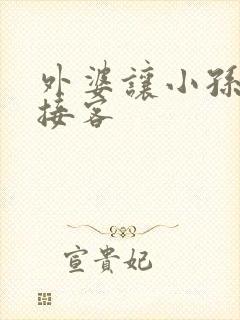 外婆讓小孫
接客
宣貴妃